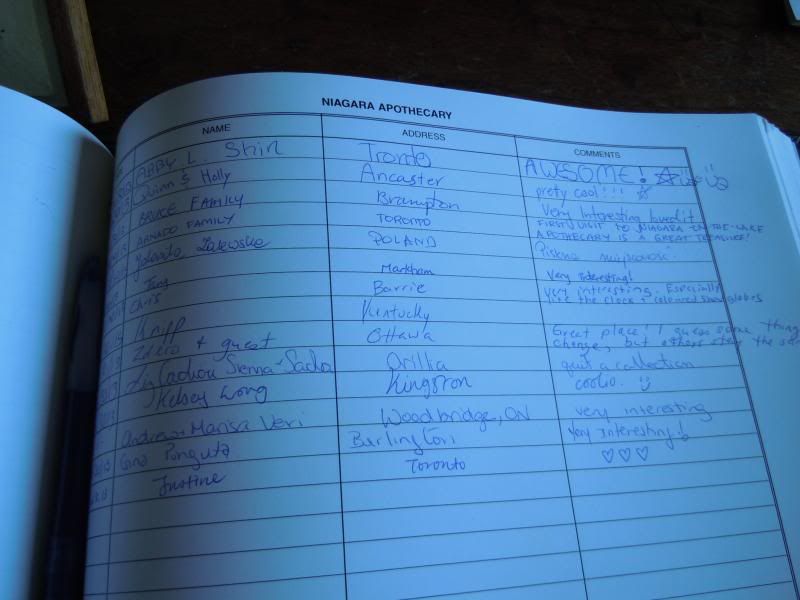 NIAGARA APOTHECARY
NAME ADDRESS COMMENTS
ABBY L. Shin Toronto AWSOME!
Quinn & Holly Ancaster pretty cool!!!
BRUCE FAMILY Brampton Very Intresting loved it
ARNADO FAMILY TORONTO FIRST VISIT TO NIAGARA ON-THE-LAKE
APOTHECARY IS A GREAT TREASURE!
Jolanta Zalewska POLAND Piękna miejscowość
Tang Markham Very interesting!
Chris Barrie very interesting. Especially
like the clock & coloured show globes
Kniff Kentucky
& guest Ottawa Great place! I guess some things
change, but others stay the
Sienna Sacha Orillia quit a collection
Kelsey Wong Kingston coolio.
Andrew & Marisa Veri Woodbridge, ON very interesting
Gino Burlington Very Interesting!
Justine Toronto ♡♡♡